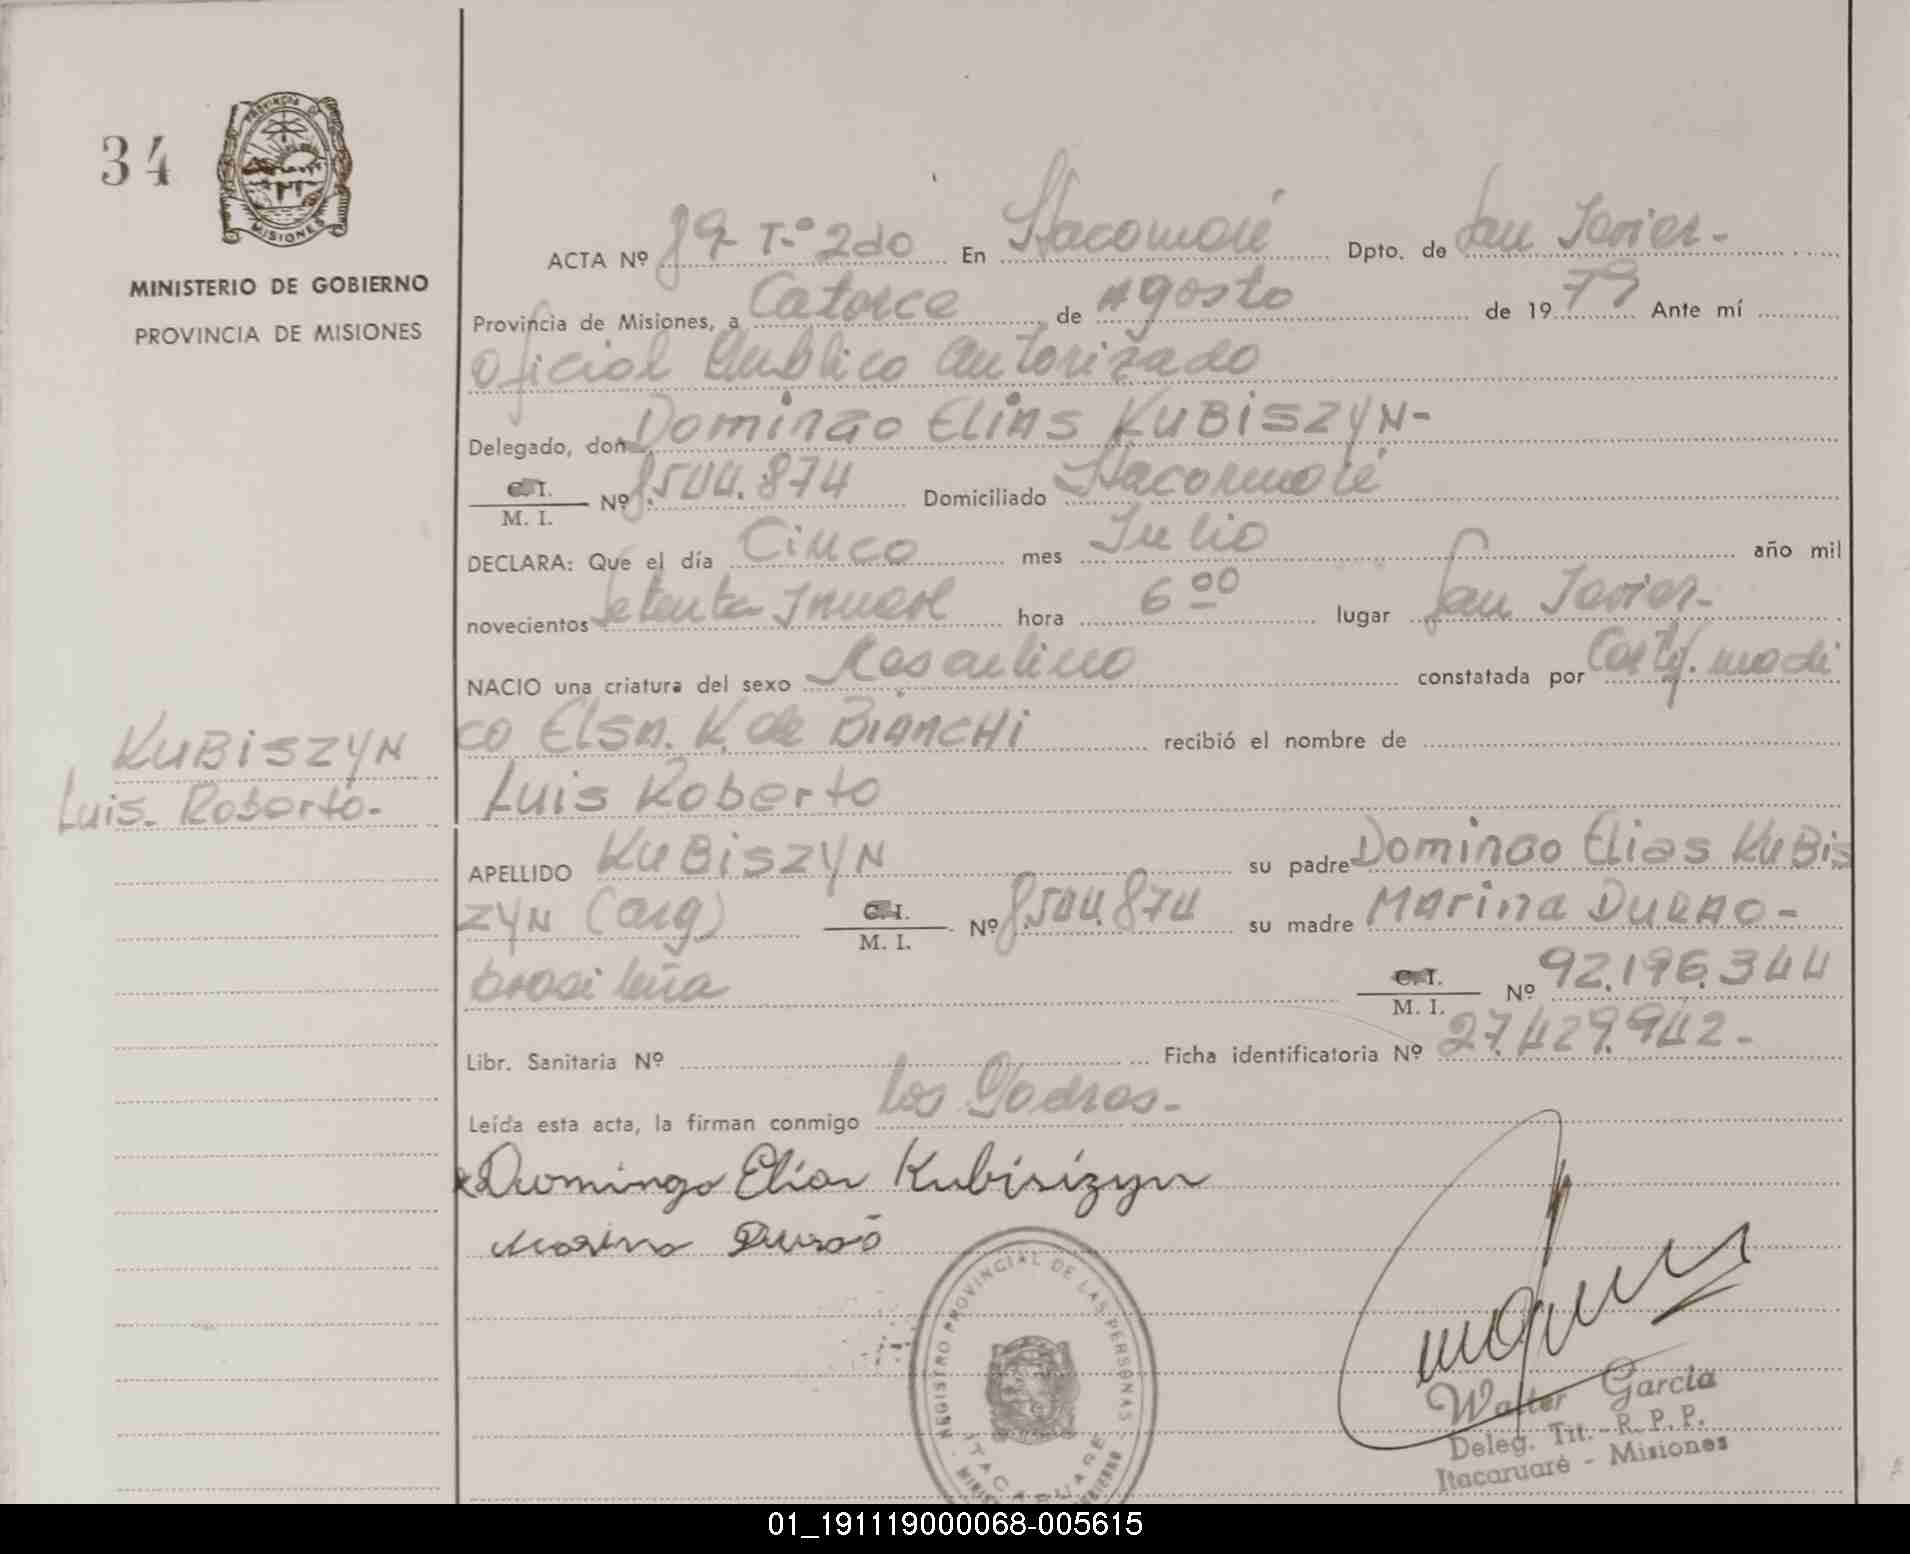 34
PROVINCIA DE
MISIONES
MINISTERIO DE GOBIERNO
PROVINCIA DE MISIONES
ACTA Nº 89- T-º 2do En Itacaruaré Dpto. de San Javier.-
Provincia de Misiones, a Catorce de Agosto de 1979 Ante mí
Oficial Publico Autorizado
Delegado, don Domingo Elias KUBISZYN-
C. I.
M. I.
Nº 8.504.874 Domiciliado Itacaruaré
DECLARA: Que el día Cinco mes Julio año mil
novecientos Setenta y nueve hora 6 00 lugar San Javier.-
NACIO una criatura del sexo Masculino constatada por Certf. medi
co Elsa. K. de BIANCHI recibió el nombre de
Luis Roberto
KUBISZYN
Luis. Roberto.-
APELLIDO KUBISZYN su padre Domingo Elias KUBIS
ZYN (arg) C. I.
M. I.
Nº 8.504.874 su madre Marina DURAO-
brasileña C. I.
M. I.
Nº 92.196.344
Libr. Sanitaria Nº Ficha identificatoria Nº 27.429.942.-
Leída esta acta, la firman conmigo los Padres.-
Domingo Elias Kubisizyn
Marina Duraõ
REGISTRO PROVINCIAL DE LAS PERSONAS
ITACARUARE
Walter García
Deleg. Tit. - R. P. P.
Itacaruaré - Misiones
01_191119000068-005615